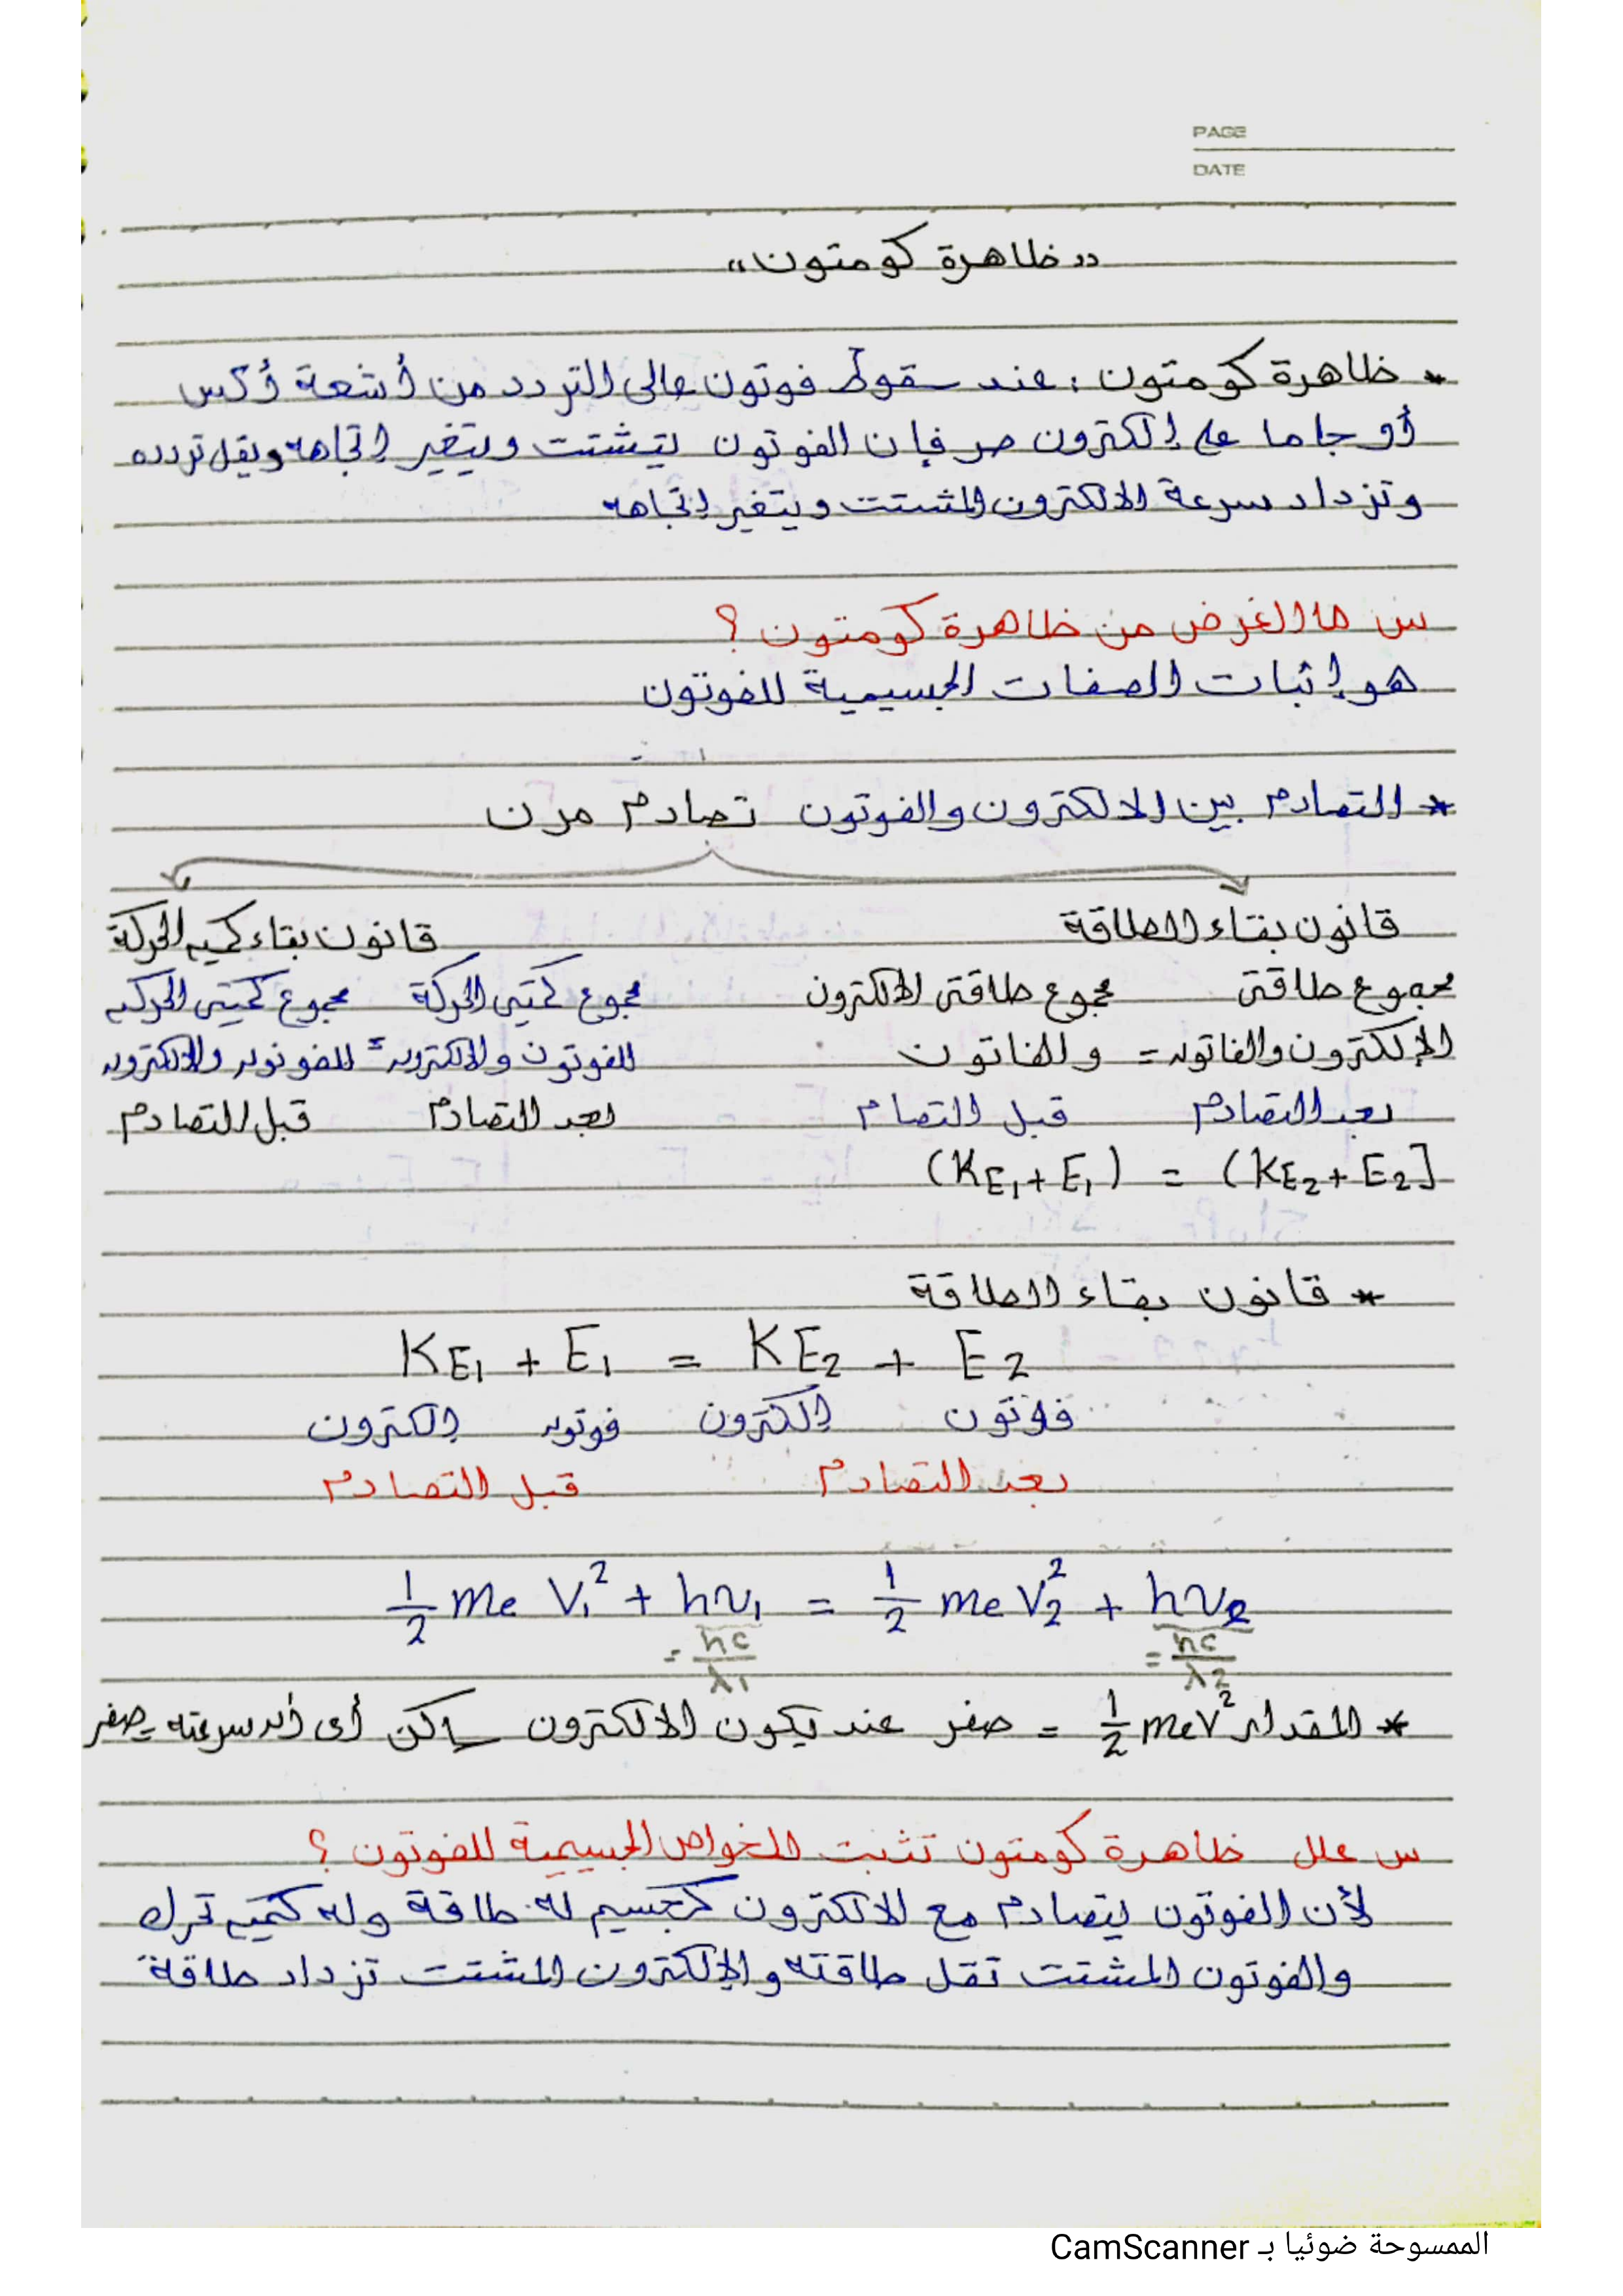 PAGE
DATE
"ظاهرة كومتون"
* ظاهرة كومتون: عند سقوط فوتون عالى التردد من أشعة أكس
أو جاما على إلكترون حر فإن الفوتون يتشتت ويتغير إتجاهه ويقل تردده
وتزداد سرعة الالكترون المشتت ويتغير إتجاهه
س ما الغرض من ظاهرة كومتون ؟
هو إثبات الصفات الجسيمية للفوتون
* التصادم بين الالكترون والفوتون تصادم مرن
قانون بقاء الطاقة
مجموع طاقتى مجموع طاقتى الالكترون
الإلكترون والفاتون = والفاتون
بعد التصادم قبل التصام
(KE₁ + E₁) = (KE₂ + E₂]
قانون بقاء كميه الحركة
مجموع كميتى الحركة مجموع كميتى الحركه
للفوتون والالكترون = للفوتون والالكترون
بعد التصادم قبل التصادم
* قانون بقاء الطاقة
KE₁ + E₁ = KE₂ + E₂
فوتون إلكترون فوتون إلكترون
بعد التصادم قبل التصادم
½ me V₁² + hν₁ = ½ me V₂² + hν₂
= hc/λ₁ = hc/λ₂
* المقدار ½ meV² = صفر عند يكون الالكترون ساكن أى أن سرعته = صفر
س علل ظاهرة كومتون تثبت الخواص الجسيمية للفوتون ؟
لأن الفوتون يتصادم مع الالكترون كجسيم له طاقة وله كميه تحرك
والفوتون المشتت تقل طاقته والإلكترون المشتت تزداد طاقة
الممسوحة ضوئيا بـ CamScanner